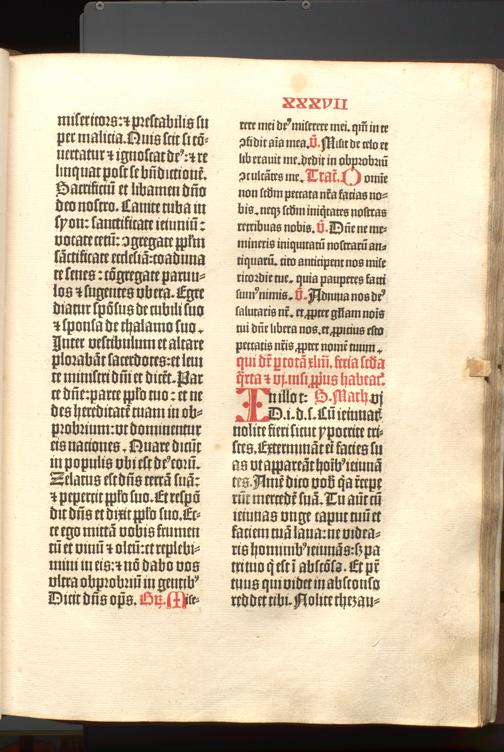 XXXVII
misericors: ⁊ prestabilis su
per malicia. Quis scit si cō-
uertatur ⁊ ignoscat deꝰ: ⁊ re
linquat post se bn̄dictionē.
Sacrificiū et libamen dn̄o
deo nostro. Canite tuba in
syon: sanctificate ieiuniū:
vocate cetū: ↄgregate ppl̄m
sāctificate ecclesiā: coaduna
te senes: cōgregate paruu-
los ⁊ sugentes vbera. Egre
diatur spōsus de cubili suo
⁊ sponsa de thalamo suo.
Inter vestibulum et altare
plorabāt sacerdotes: et leui
te ministri dn̄i et dicēt. Par
ce dn̄e: parce ppl̄o tuo: et ne
des hereditatē tuam in ob-
probrium: vt dominentur
eis naciones. Quare dicūt
in populis vbi est deꝰ eorū.
Zelatus est dn̄s terrā suā:
⁊ pepercit ppl̄o suo. Et respō
dit dn̄s et dixit ppl̄o suo. Ec-
ce ego mittā vobis frumen
tū et vinū ⁊ oleū: et replebi-
mini in eis: ⁊ nō dabo vos
vltra obprobriū in gentibꝰ
Dicit dn̄s ops. Gr̄. Mise-
rere mei deꝰ miserere mei. qm̄ in te
ↄfidit aīa mea. v̄. Misit de celo et
liberauit me. dedit in obprobriū
ↄculcātes me. Tract. Domie
non scdm̄ peccata nr̄a facias no-
bis. neqꝫ scdm̄ iniqͥtates nostras
retribuas nobis. v̄. Dn̄e ne me-
mineris iniquitatū nostrarū an-
tiquarū. cito anticipent nos mise
ricordie tue. quia pauperes facti
sumꝰ nimis. v̄. Adiuua nos deꝰ
salutaris nr̄. et ꝓpter gl̄iam nois
tui dn̄e libera nos. et ꝓpicius esto
peccatis nr̄is ꝓpter nomē tuum.
qui dr̄ ꝑ totā xlm̄. feria scd̄a
qr̄ta ⁊ vj. nisi ꝓpͥus habeat̄.
In illo t: S. Math. vj
D. i. d. s. Cū ieiunat̄
nolite fieri sicut ypocrite tri-
stes. Extermināt eī facies su
as vt appareāt hoībꝰ ieiunā
tes. Amē dico vob̄ qa recepe
rūt mercedē suā. Tu aūt cū
ieiunas vnge caput tuū et
faciem tuā laua: ne videa-
ris hominibꝰ ieiunās: sꝫ pa
tri tuo q̄ est ī abscōso. Et pr̄
tuus qui videt in absconso
reddet tibi. Nolite thezau-